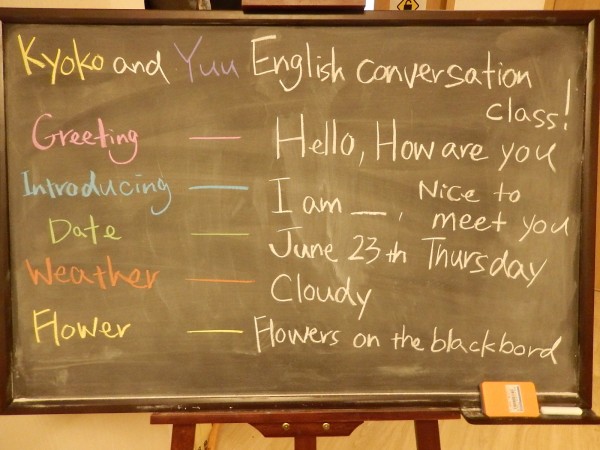 Kyoko and Yuu English conversation
class!
Greeting — Hello, How are you
Introducing — I am __, Nice to
meet you
Date — June 23th Thursday
Weather — Cloudy
Flower — Flowers on the blackbord